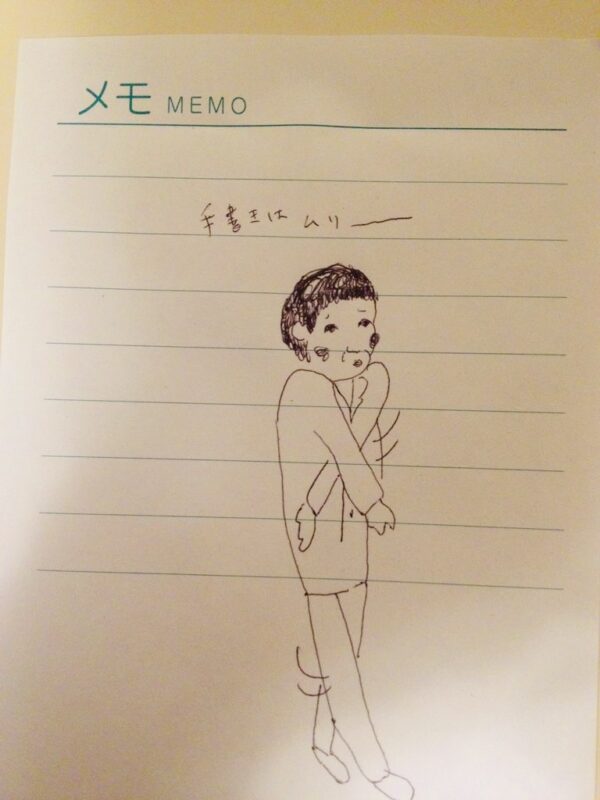 メモ MEMO
手書きは ムリー